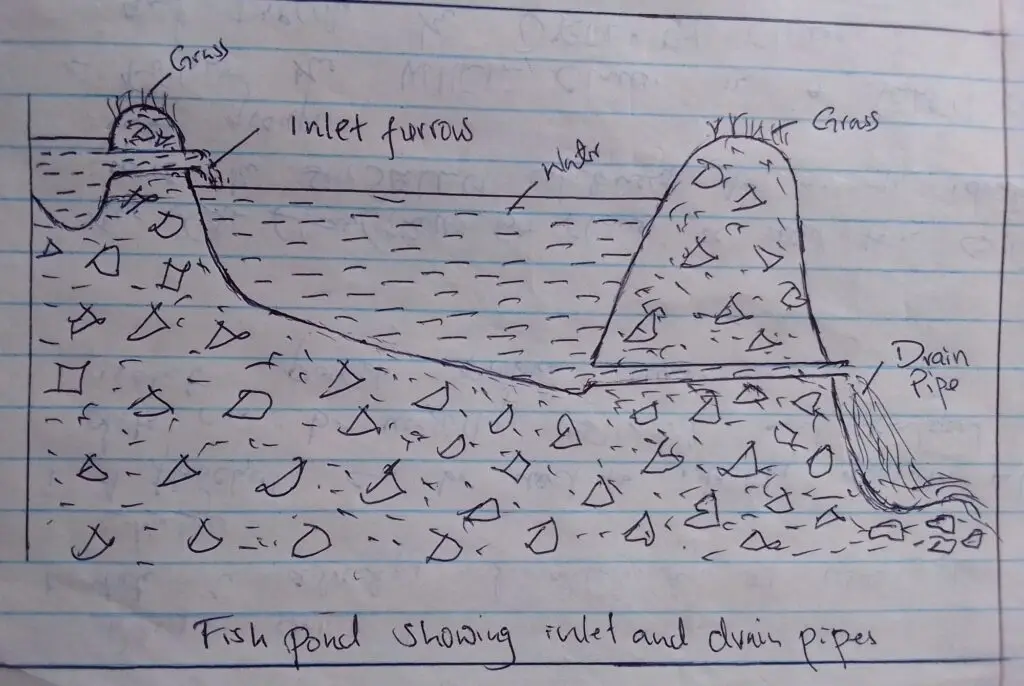 Grass
Inlet furrows
Water
Grass
Drain
Pipe
Fish pond showing inlet and drain pipes